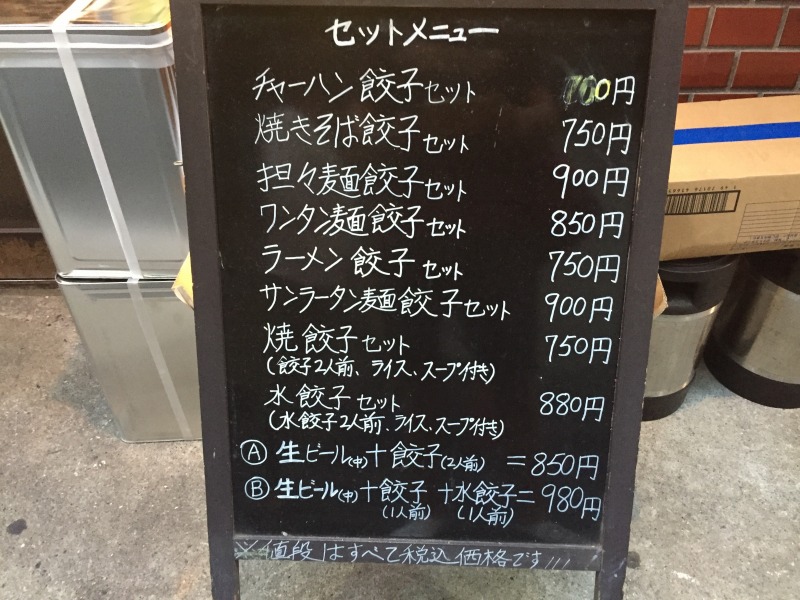 セットメニュー
チャーハン餃子セット 700円
焼きそば餃子セット 750円
担々麺餃子セット 900円
ワンタン麺餃子セット 850円
ラーメン餃子セット 750円
サンラータン麺餃子セット 900円
焼餃子セット 750円
(餃子2人前、ライス、スープ付き)
水餃子セット 880円
(水餃子2人前、ライス、スープ付き)
Ⓐ 生ビール(中)+餃子(2人前) =850円
Ⓑ 生ビール(中)+餃子(1人前)+水餃子(1人前)=980円
※値段はすべて税込価格です!!!